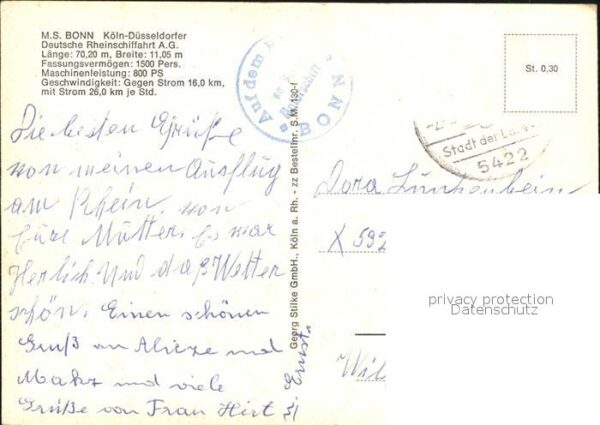 M.S. BONN Köln-Düsseldorfer
Deutsche Rheinschiffahrt A.G.
Länge: 70,20 m, Breite: 11,05 m
Fassungsvermögen: 1500 Pers.
Maschinenleistung: 800 PS
Geschwindigkeit: Gegen Strom 16,0 km,
mit Strom 26,0 km je Std.
Auf dem
BONN
St. 0,30
Stadt der
5422
Die besten Grüße
von meinen Ausflug
am Rhein. von
Eure Mutter. Es war
Herlich Und daß Wetter
schön. Einen schönen
Gruß an und
und viele
Grüße von Frau Hirt
Ernst.
Georg Stilke GmbH., Köln a. Rh. - zz Bestellnr. S.M. 130-I
Dora
X 592
Wil
privacy protection
Datenschutz